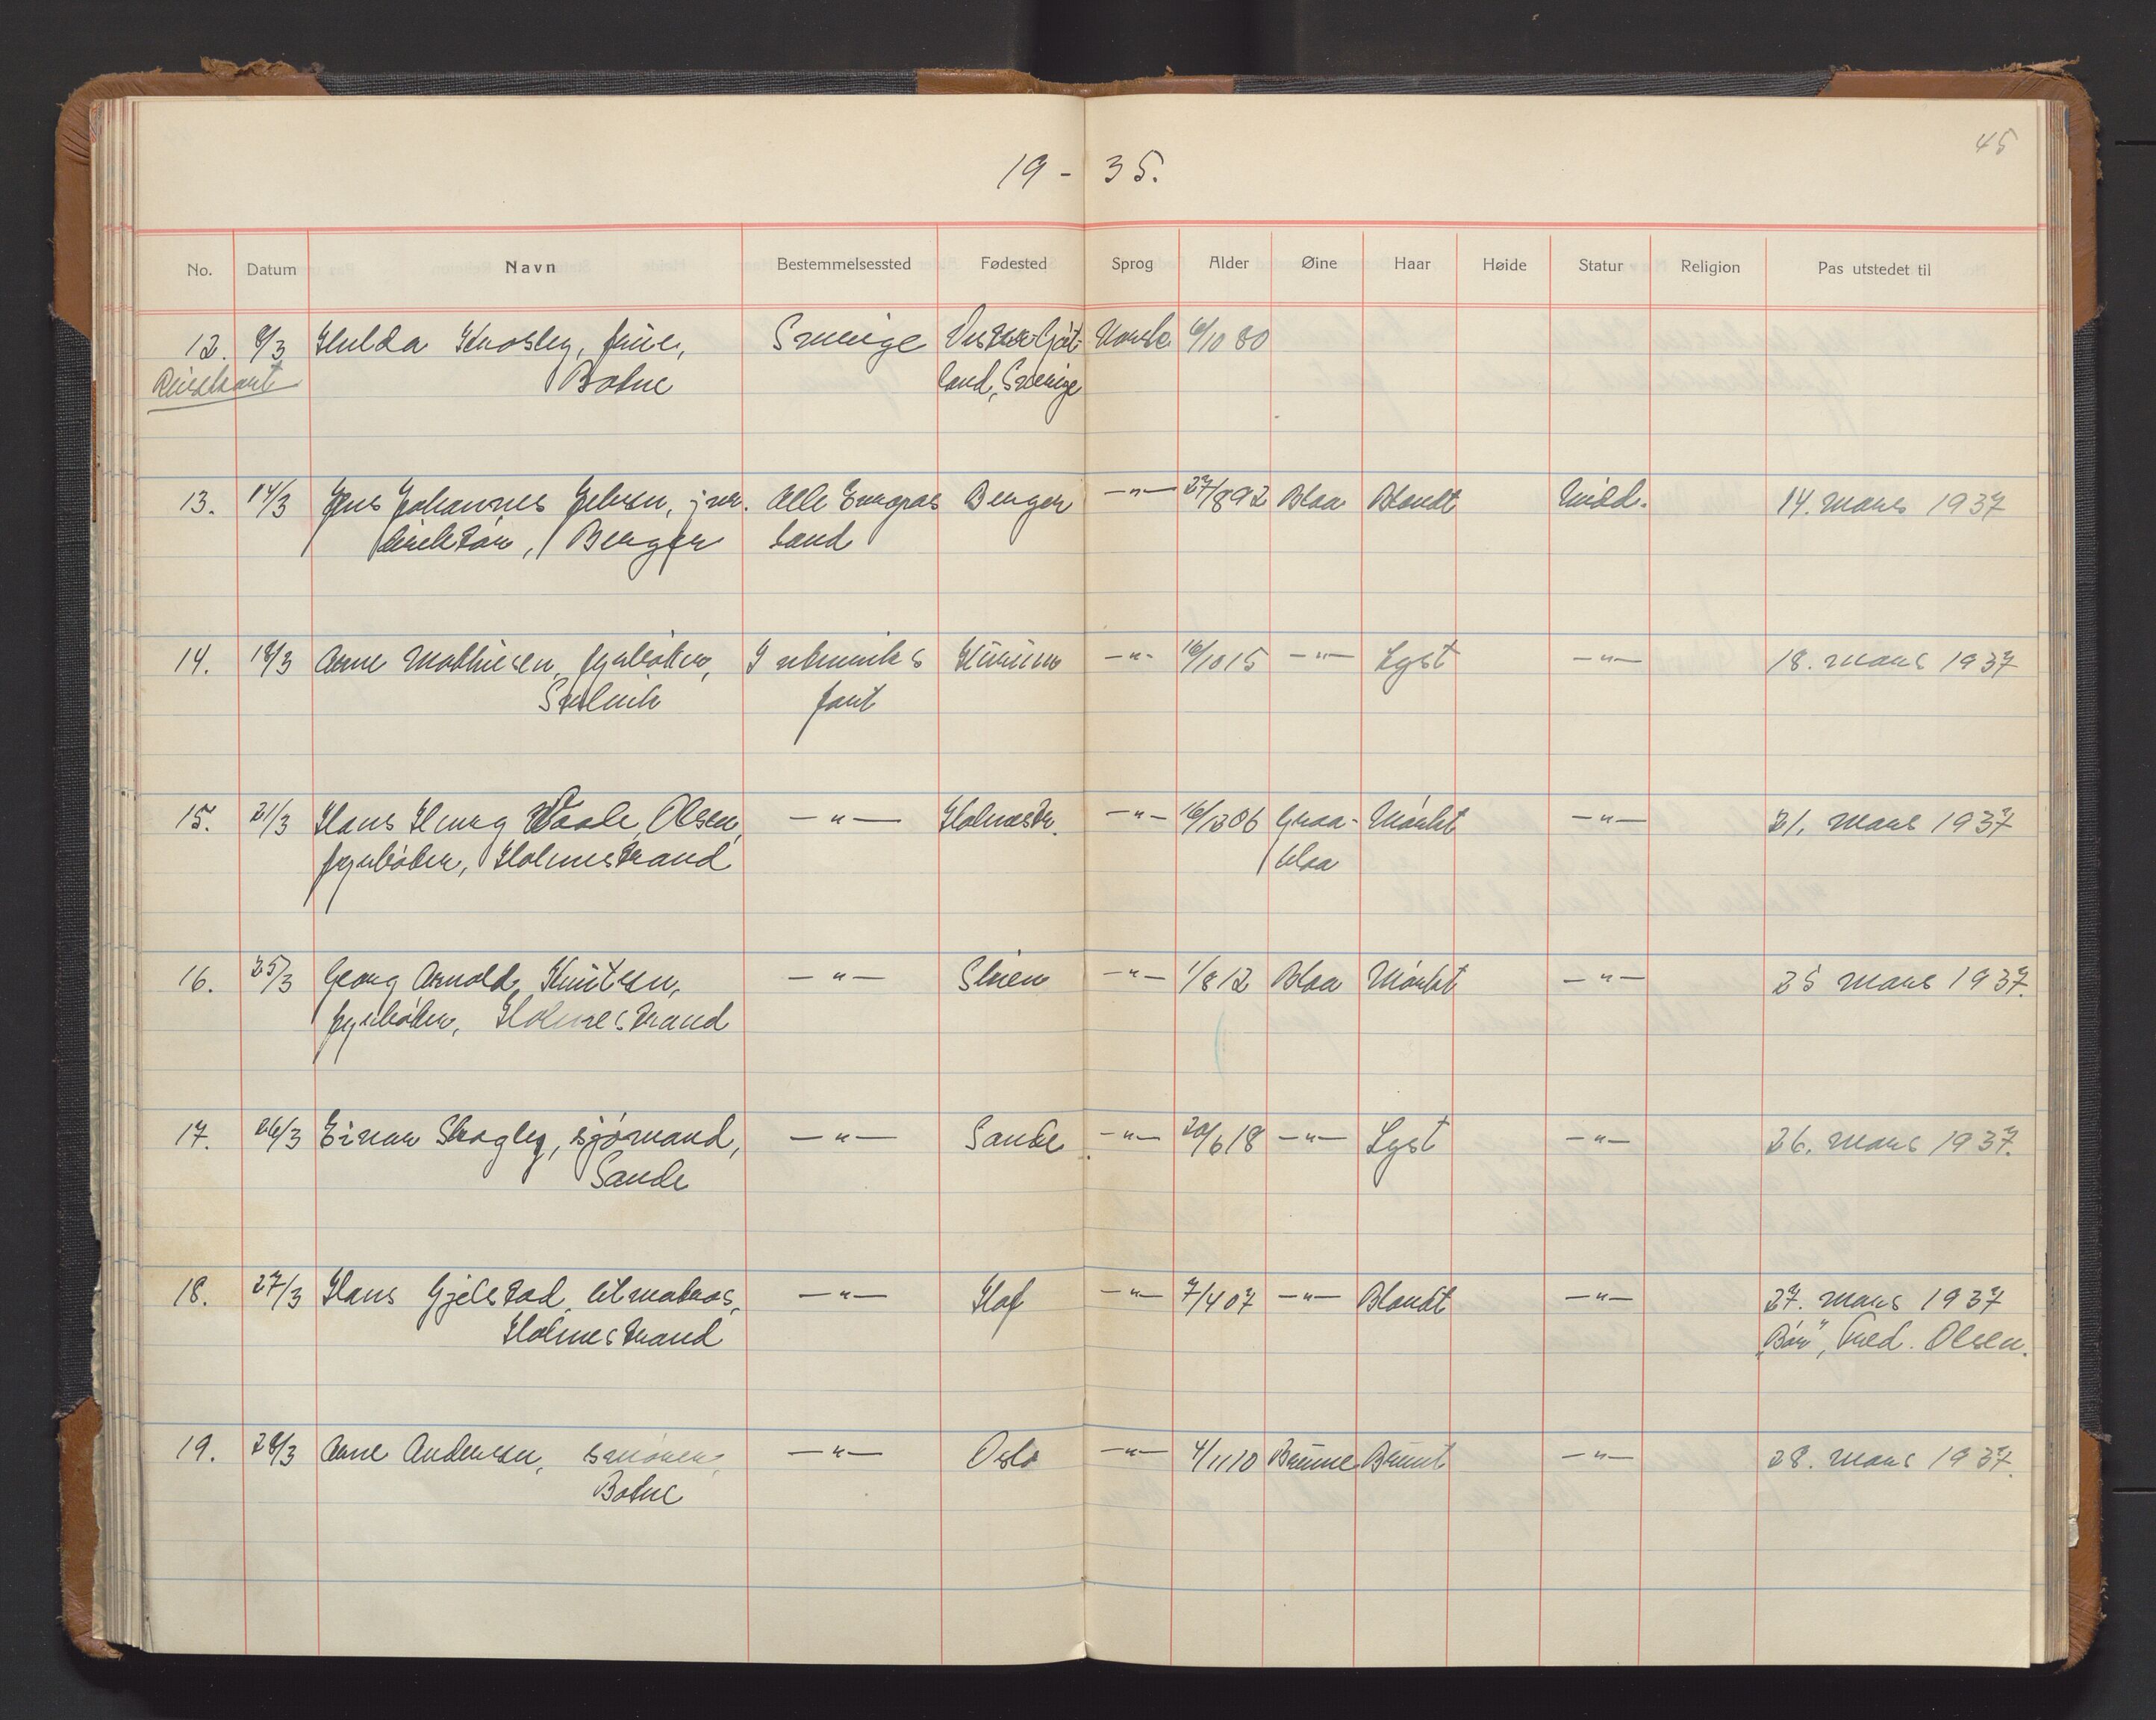 45
19 - 35.
No. Datum Navn Bestemmelsessted Fødested Sprog Alder Øine Haar Høide Statur Religion Pas utstedet til
12. 8/3 Hulda Krosby, frue, Sverige Vester Gøt- Norsk 6/10 80
Reisekort Botne land, Sverige
13. 14/3 Jens Johannes Jebsen, jnr. Alle Europas Berger -"- 27/8 92 Blaa Blondt Midd. 14. mars 1937
direktør, Berger land
14. 18/3 Arne Mathiesen, fyrbøter, I utenriks Hurum -"- 16/10 15 -"- Lyst -"- 18. mars 1937
Selvik fart
15. 21/3 Hans Henry Waale Olsen, -"- Holmestr. -"- 16/12 06 Graa- Mørkt -"- 21. mars 1937
fyrbøter, Holmestrand blaa
16. 25/3 Georg Arnold Knutsen, -"- Skien -"- 1/8 12 Blaa Mørkt -"- 25 mars 1937.
fyrbøter, Holmestrand
17. 26/3 Einar Skogly, sjømand, -"- Sande -"- 20/6 18 -"- Lyst -"- 26. mars 1937.
Sande
18. 27/3 Hans Gjelstad, letmatros, -"- Hof -"- 7/4 07 -"- Blondt -"- 27. mars 1937
Holmestrand "Bør", Fred. Olsen.
19. 28/3 Arne Andersen, Botne -"- Oslo -"- 4/11 10 Brune Brunt -"- 28. mars 1937.